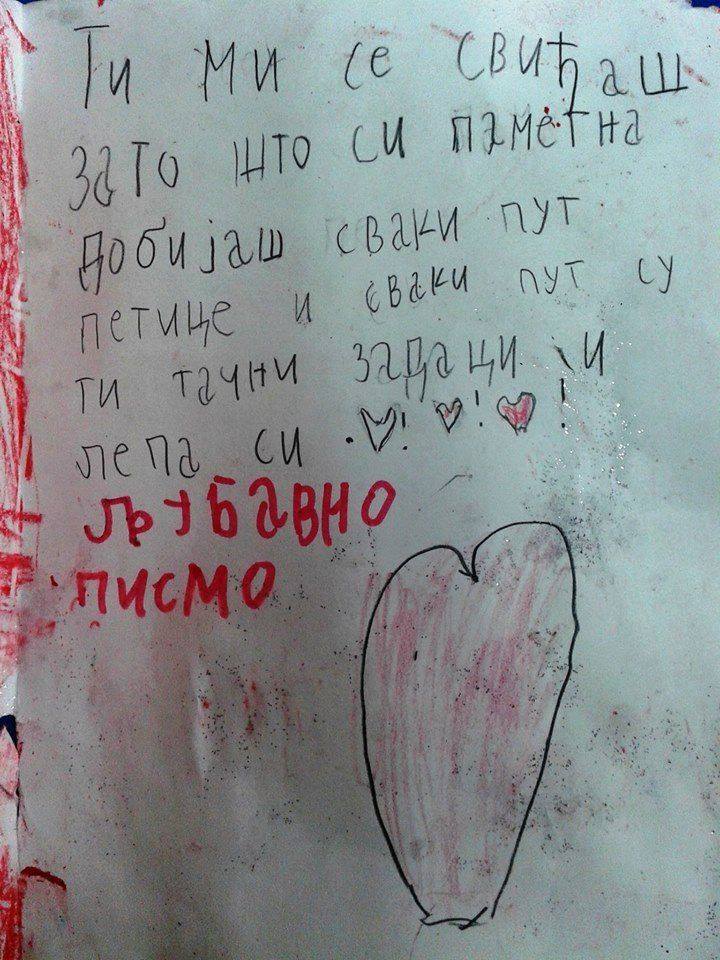 Ти ми се свиђаш
зато што си паметна
добијаш сваки пут
петице и сваки пут су
ти тачни задаци и
лепа си . ! ! !
љубавно
писмо